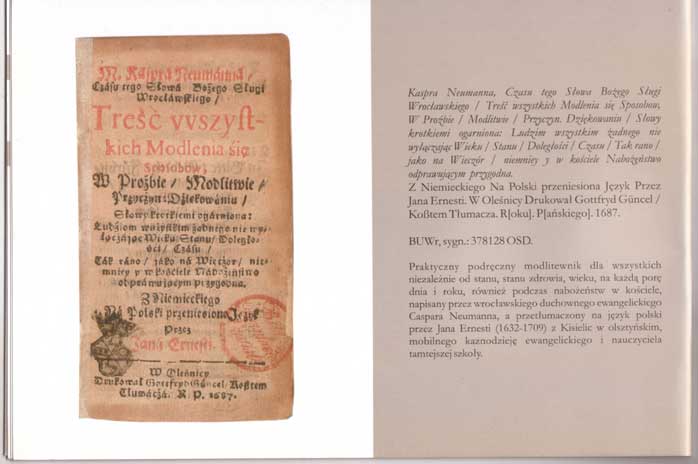 M. Kaspra Neumánná /
Czásu tego Słowá Bożego Sługi
Wrocłáwskiego /
Treść vvszyst-
kich Modlenia się
Sposobow,
W Proźbie / Modlitwie /
Przyczyn: Dźiękowániu /
Słowy krotkiemi ogárniona:
Ludźiom wszystkim żadnego nie wy-
łączájąc Wieku / Stanu / Doległo-
śći / Czásu /
Ták ráno / jáko ná Wieczor / nie-
mniey y w kośćiele Nabożeństwo
odpráwującym przygodna.
Z Niemieckiego
Ná Polski przeniesiona Język
Przez
Janá Ernesti.
W Oleśnicy
Drukował Gottfryd Güncel / Kosztem
Tłumáczá. R. P. 1687.
Kaspra Neumanna, Czasu tego Słowa Bożego Sługi
Wrocławskiego / Treść wszystkich Modlenia się Sposobow,
W Proźbie / Modlitwie / Przyczyn. Dziękowaniu / Słowy
krotkiemi ogarniona: Ludziom wszystkim żadnego nie
wyłączając Wieku / Stanu / Doległości / Czasu / Tak rano /
jako na Wieczór / niemniey y w kościele Nabożeństwo
odprawującym przygodna.
Z Niemieckiego Na Polski przeniesiona Język Przez
Jana Ernesti. W Oleśnicy Drukował Gottfryd Güncel /
Koßtem Tłumacza. R[oku]. P[ańskiego]. 1687.
BUWr, sygn.: 378128 OSD.
Praktyczny podręczny modlitewnik dla wszystkich
niezależnie od stanu, stanu zdrowia, wieku, na każdą porę
dnia i roku, również podczas nabożeństw w kościele,
napisany przez wrocławskiego duchownego ewangelickiego
Caspara Neumanna, a przetłumaczony na język polski
przez Jana Ernesti (1632-1709) z Kisielic w olsztyńskim,
mobilnego kaznodzieję ewangelickiego i nauczyciela
tamtejszej szkoły.